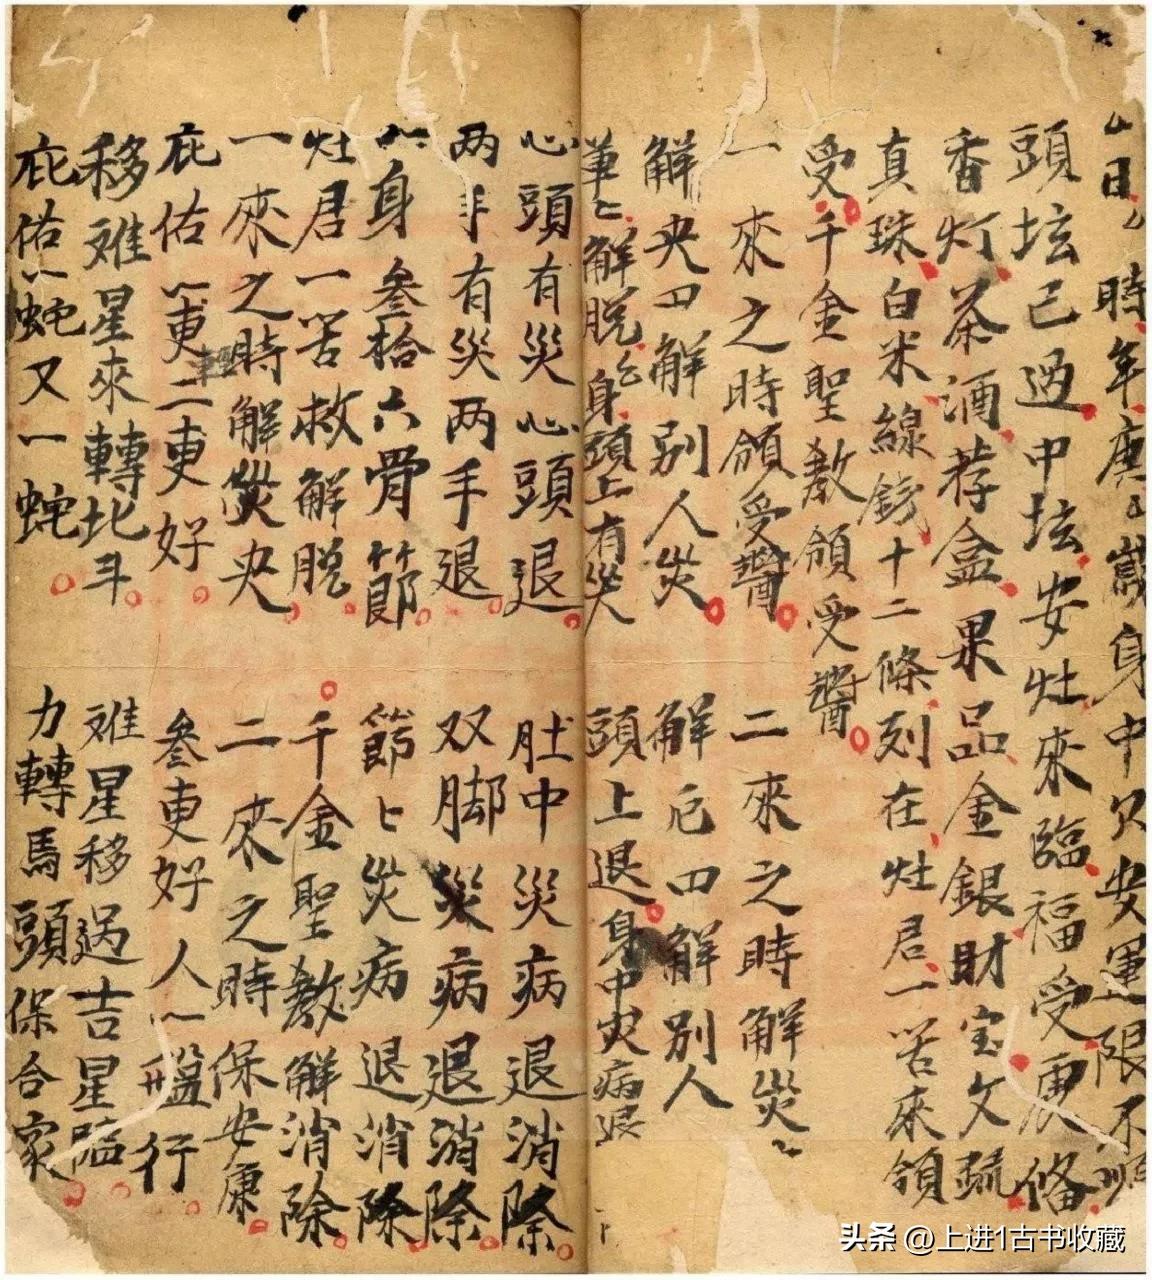 日 時年庚 歲身中欠安運限不順
頭坛已过中坛安灶來臨福受 偹
香灯茶酒荐盒果品金銀財宝文疏
真珠白米線錢十二條列在灶君一 來領
受千金聖教領受
一來之時領受 二來之時解災
解央口解別人災 解厄口解別人
解脱 身頭上有災 頭上退身中灾病退
心頭有災心頭退 肚中災病退消除
两手有災两手退 双脚災病退消除
身叁拾六骨節 節 災病退消除
灶君一 救解脱 千金聖教解消除
一來之時解災央 二來之時保安康
庇佑一更二更好 叁更好人 行
移难星來轉北斗 难星移过吉星臨
庇佑一蛇又一蛇 力轉馬頭保合家
头条 @上进1古书收藏